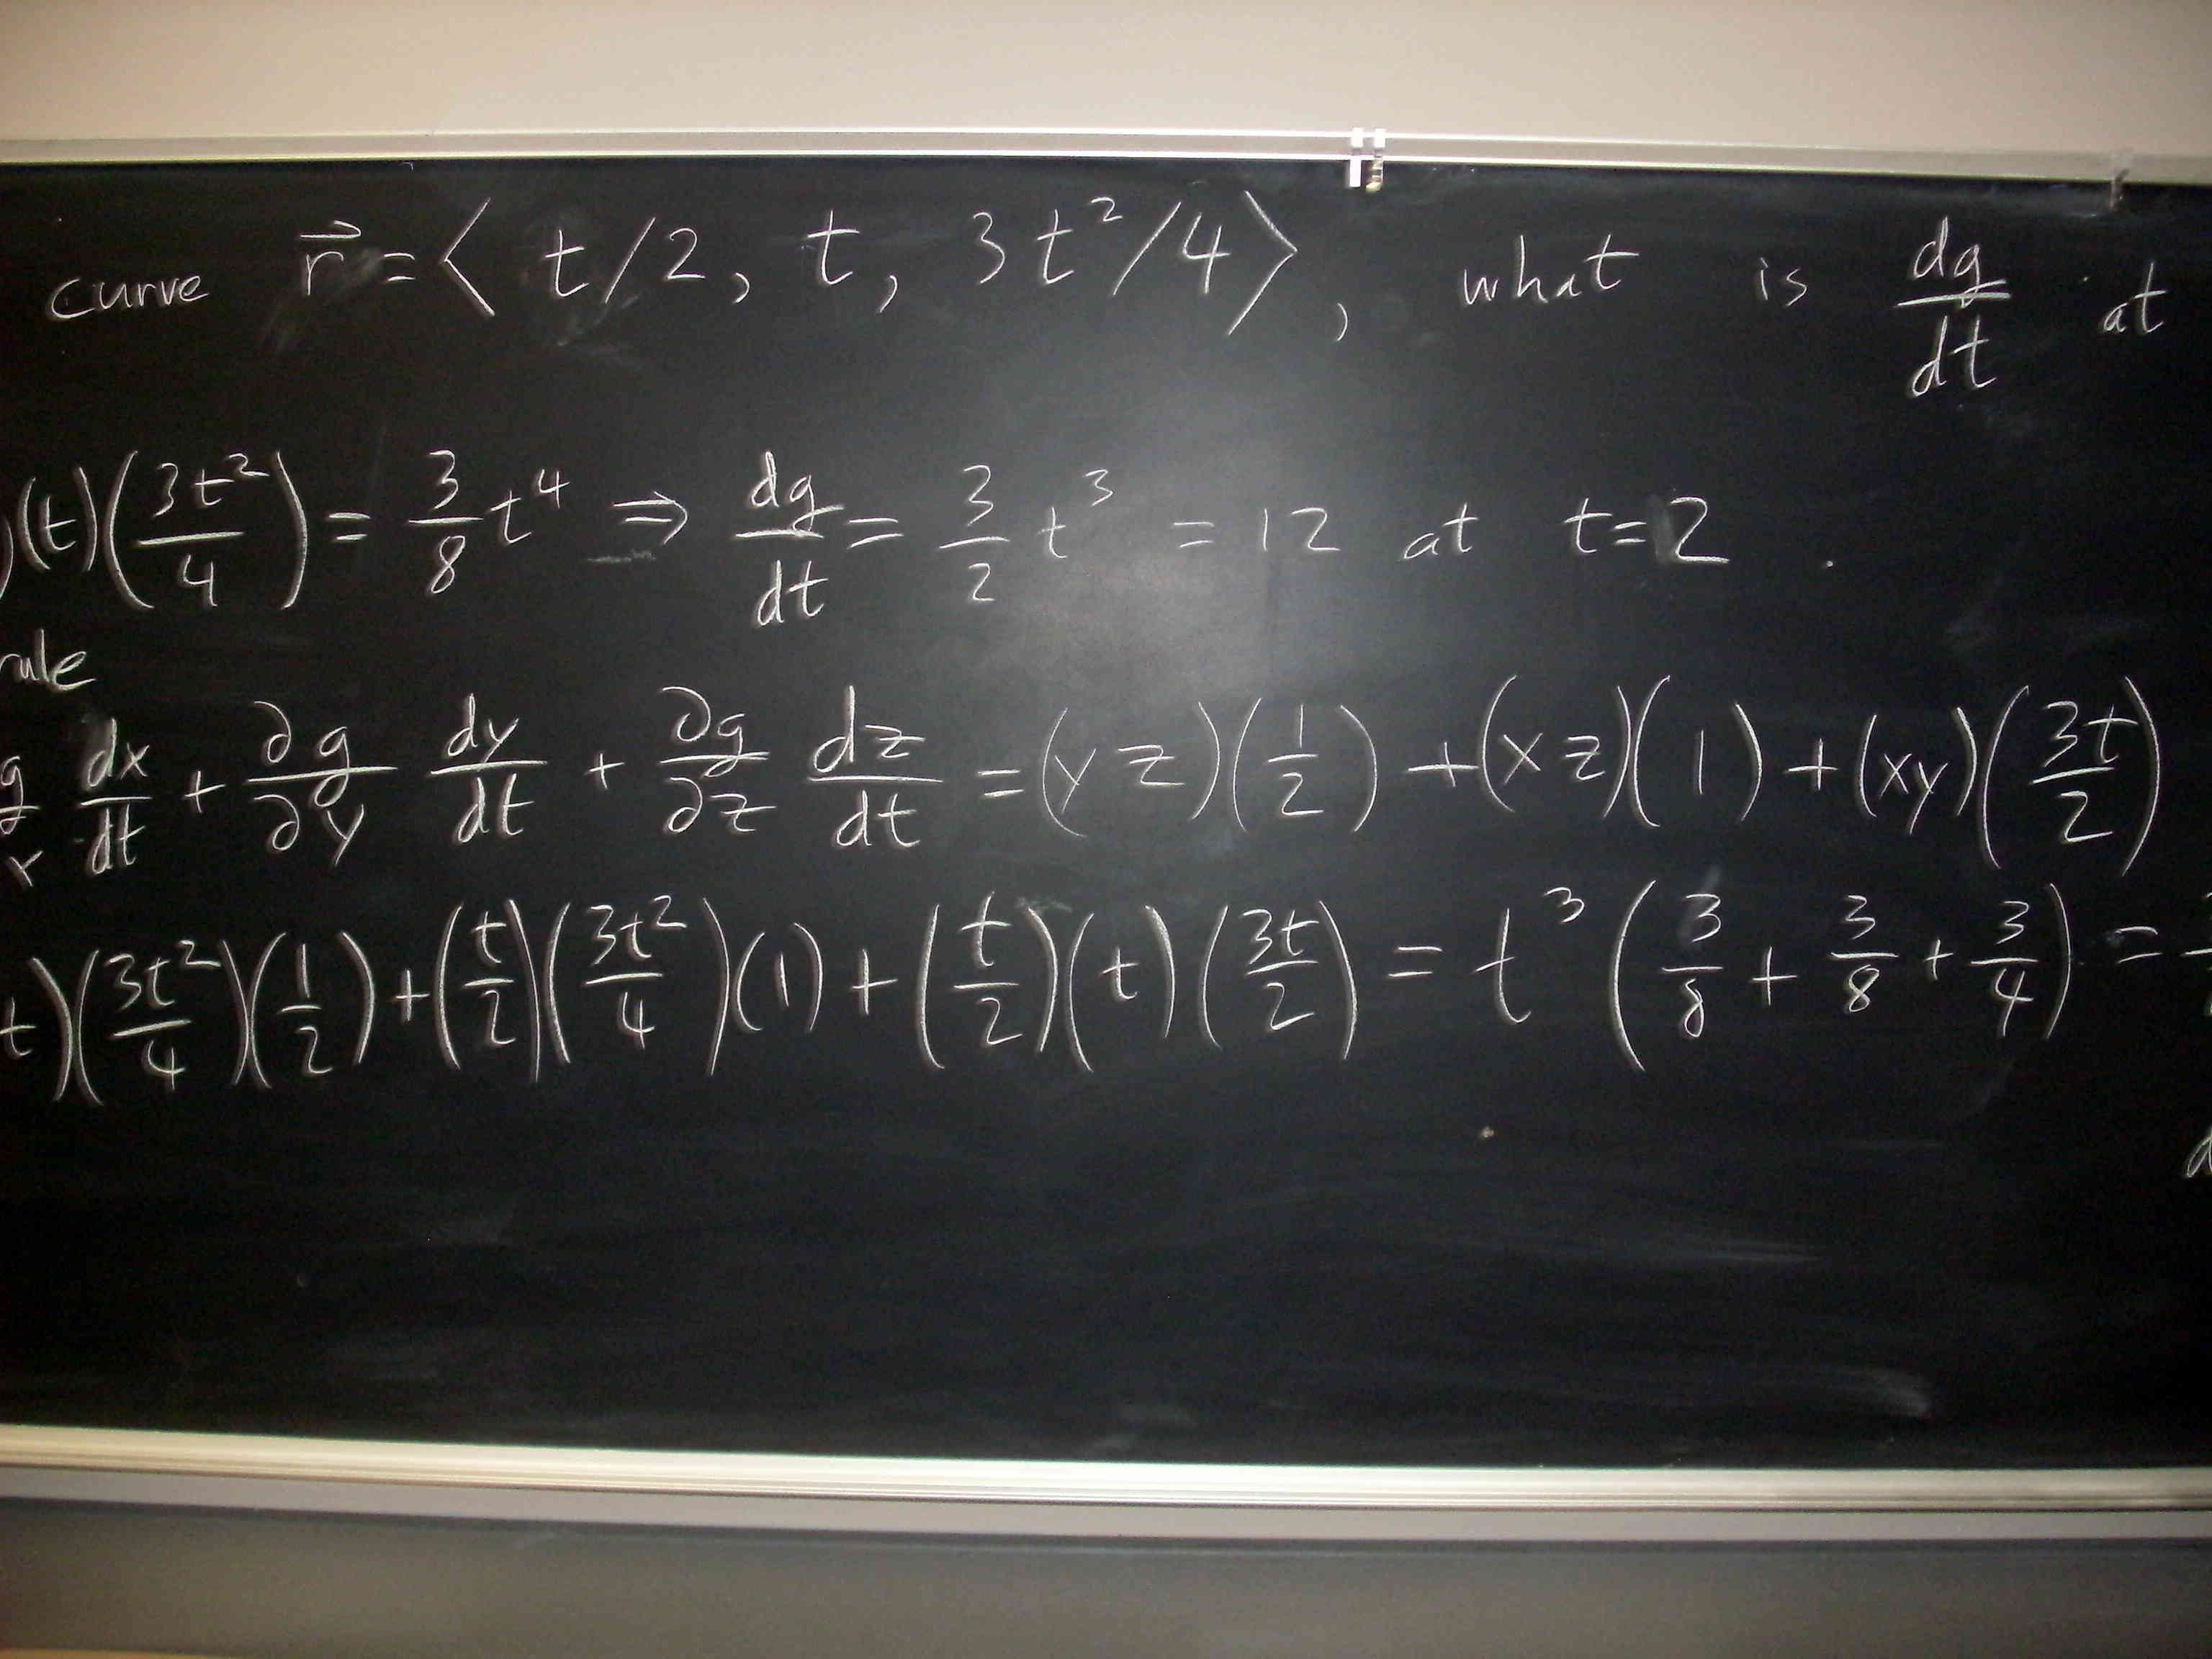 curve r⃗ = ⟨ t/2, t, 3t²/4 ⟩, what is dg/dt at
)(t)(3t²/4) = 3/8 t⁴ ⇒ dg/dt = 3/2 t³ = 12 at t=2 .
rule
dx/dt + ∂g/∂y dy/dt + ∂g/∂z dz/dt = (yz)(1/2) + (xz)(1) + (xy)(3t/2)
t)(3t²/4)(1/2) + (t/2)(3t²/4)(1) + (t/2)(t)(3t/2) = t³(3/8 + 3/8 + 3/4) =